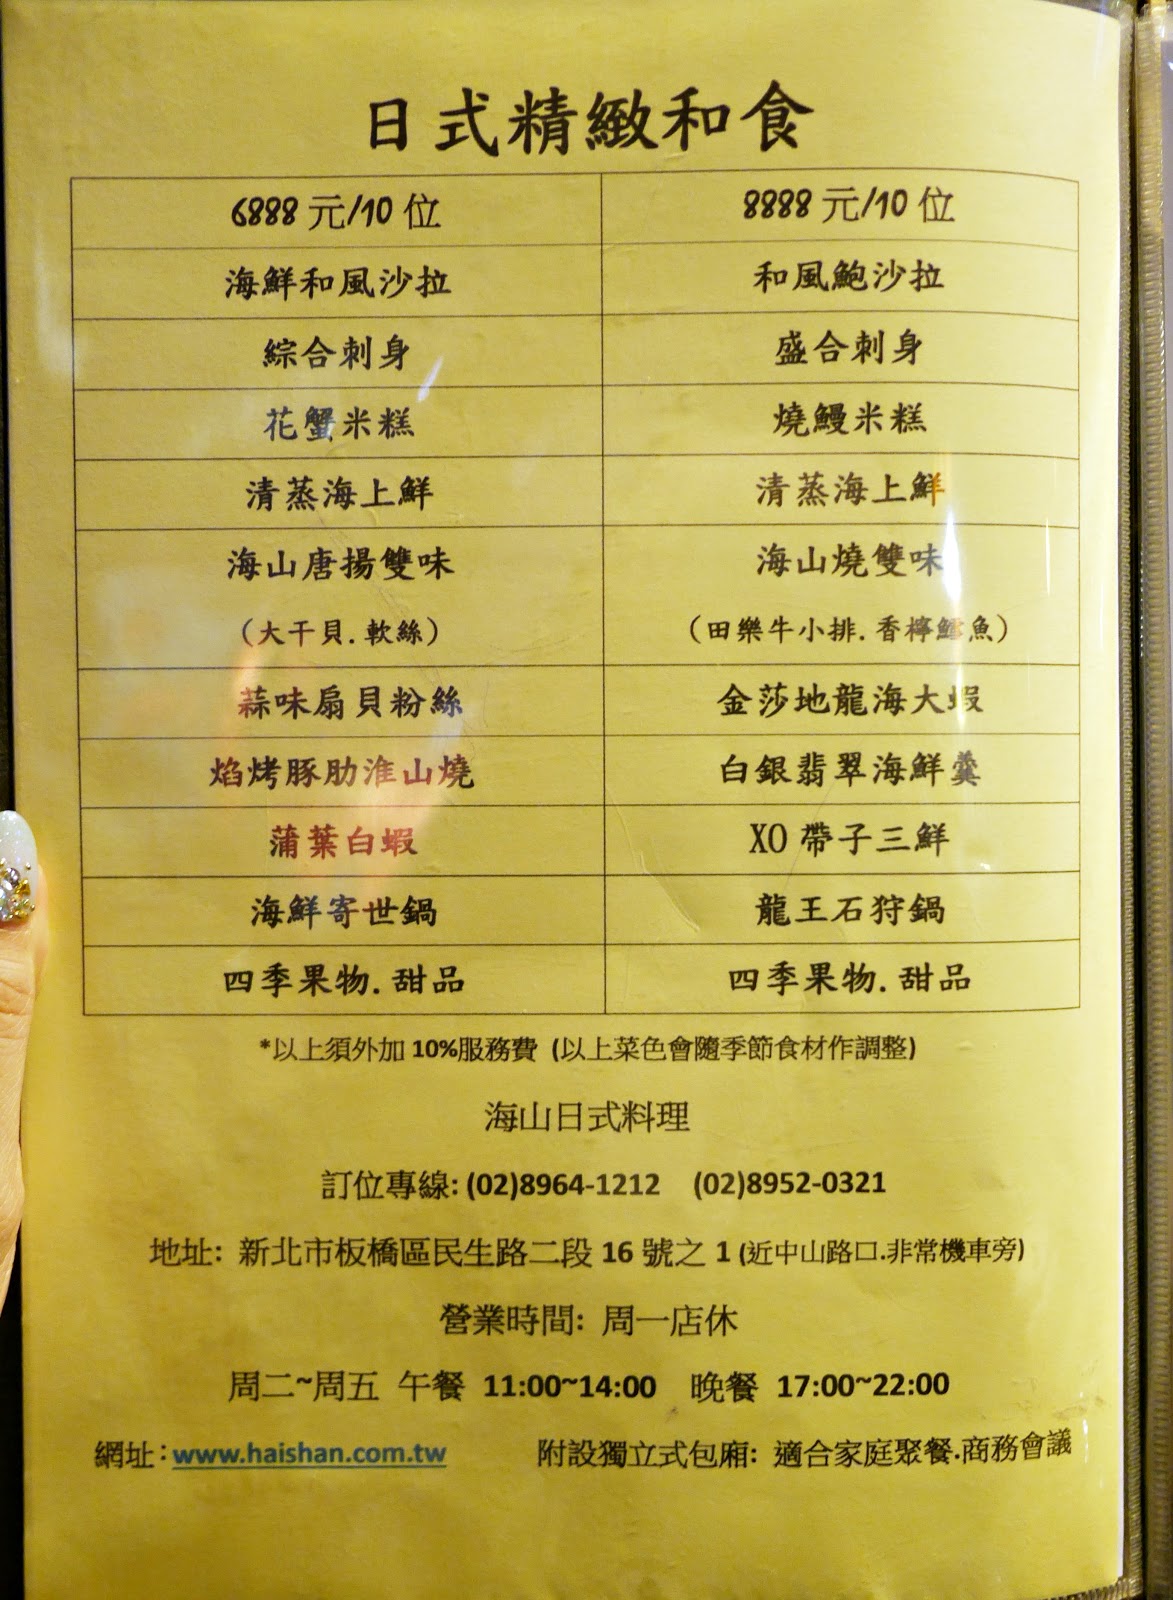 日式精緻和食
6888 元/10 位 8888 元/10 位
海鮮和風沙拉 和風鮑沙拉
綜合刺身 盛合刺身
花蟹米糕 燒鰻米糕
清蒸海上鮮 清蒸海上鮮
海山唐揚雙味 海山燒雙味
(大干貝.軟絲) (田樂牛小排.香檸鱈魚)
蒜味扇貝粉絲 金莎地龍海大蝦
焰烤豚肋淮山燒 白銀翡翠海鮮羹
蒲葉白蝦 XO 帶子三鮮
海鮮寄世鍋 龍王石狩鍋
四季果物.甜品 四季果物.甜品
*以上須外加 10%服務費 (以上菜色會隨季節食材作調整)
海山日式料理
訂位專線: (02)8964-1212 (02)8952-0321
地址: 新北市板橋區民生路二段 16 號之 1 (近中山路口.非常機車旁)
營業時間: 周一店休
周二~周五 午餐 11:00~14:00 晚餐 17:00~22:00
網址:www.haishan.com.tw 附設獨立式包廂: 適合家庭聚餐.商務會議